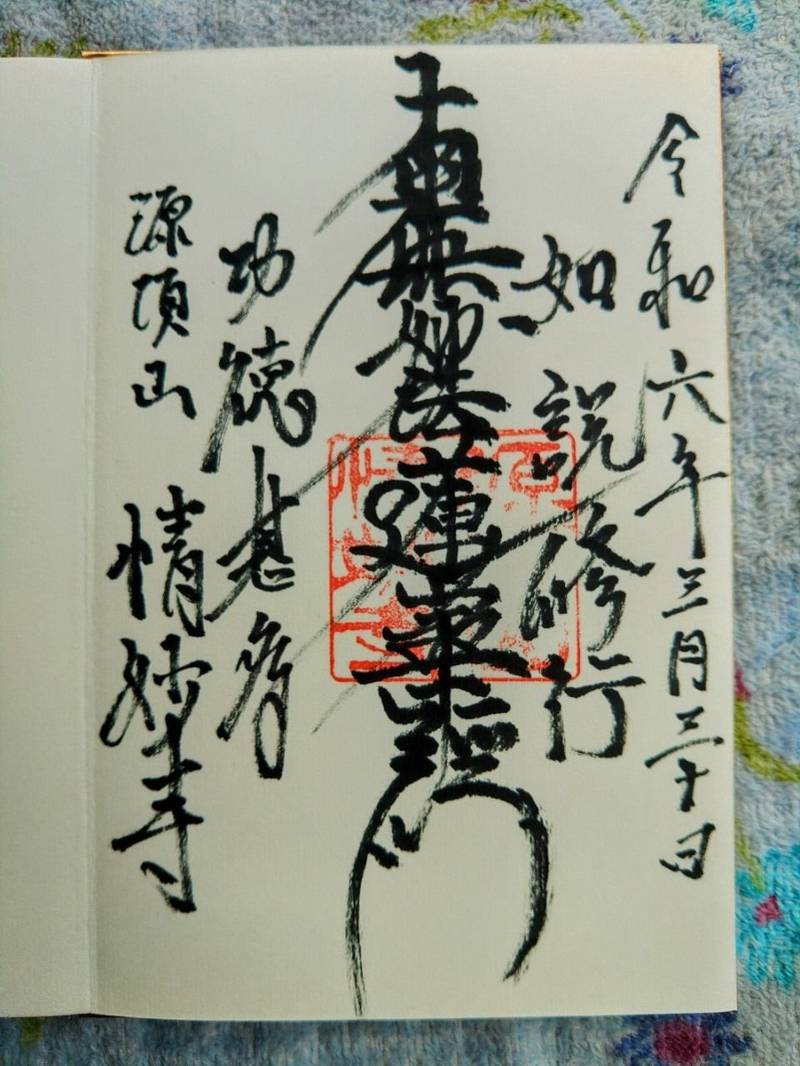 令和六年三月三十日
如説修行
南無妙法蓮華経
功徳甚多
源頂山 情妙寺